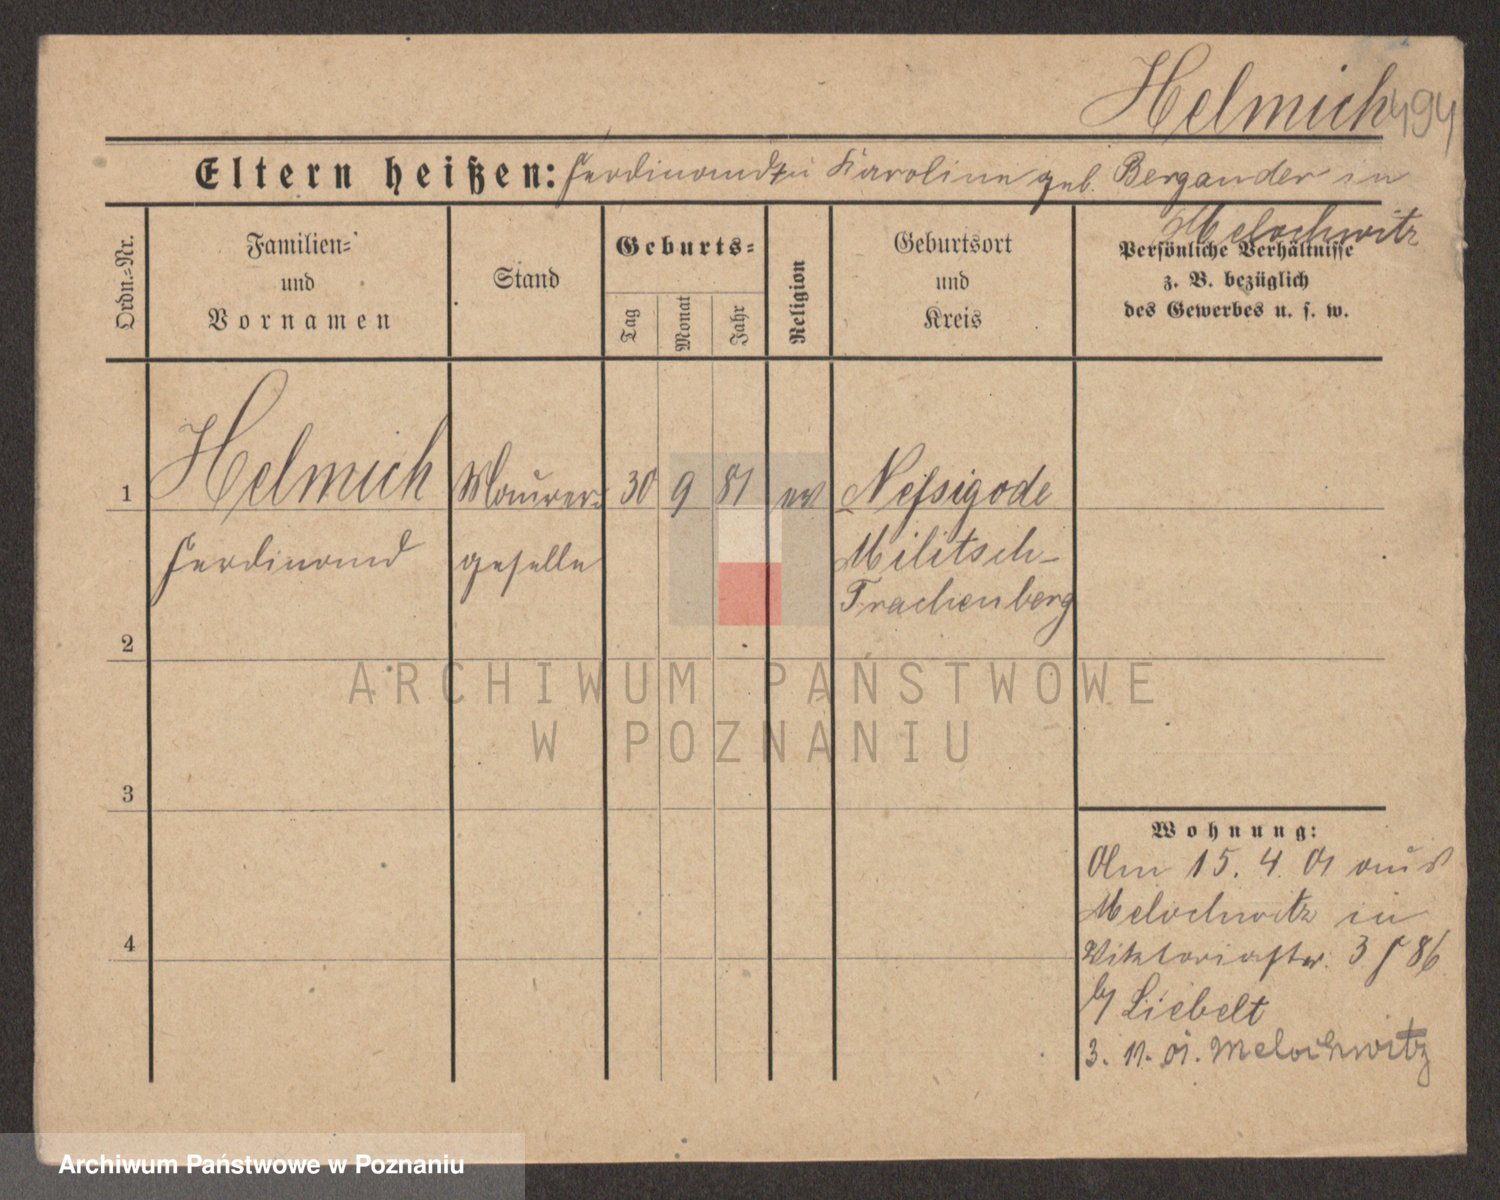 Helmich 494
Eltern heißen: Ferdinand u Karoline geb. Bergander in
Melochwitz
Ordn.=Nr.
Familien=
und
Vornamen
Stand
Geburts=
Tag
Monat
Jahr
Religion
Geburtsort
und
Kreis
Persönliche Verhältnisse
z. B. bezüglich
des Gewerbes u. s. w.
1 Helmich Maurer= 30 9 81 ev Nesigode
Ferdinand geselle Militsch-
Trachenberg
2
3
4
Wohnung:
Am 15. 4. 01 aus
Melochwitz in
Viktoriastr. 3 86
b/ Liebelt
3. 11. 01. Melochwitz
ARCHIWUM PAŃSTWOWE
W POZNANIU
Archiwum Państwowe w Poznaniu